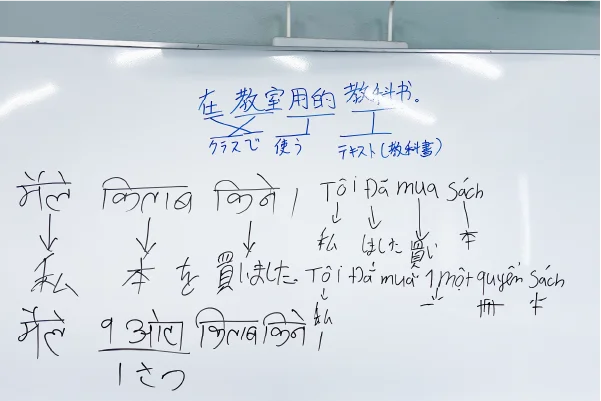 在 教室用的 教科书。
クラスで 使う テキスト(教科書)
मैले किताब किने। Tôi Đã mua sách
私 ました 買い 本
私 本 を 買いました Tôi Đã mua 1 một quyển sách
私 一 冊 本
मैले १ ओटा किताब किने।
1さつ